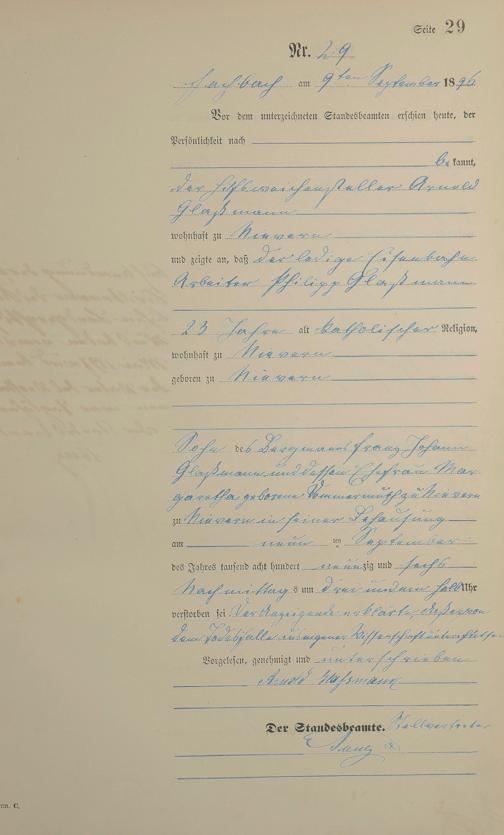 Seite 29
Nr. 29
Fachbach am 9ten September 1896
Vor dem unterzeichneten Standesbeamten erschien heute, der
Persönlichkeit nach
bekannt,
der Hilfsweichensteller Arnold
Glaßmann
wohnhaft zu Nievern
und zeigte an, daß der ledige Eisenbahn
Arbeiter Philipp Glaßmann
23 Jahre alt katholischer Religion,
wohnhaft zu Nievern
geboren zu Nievern
Sohn des Bergmanns Franz Johann
Glaßmann und dessen Ehefrau Mar
garetha geborene zu Nievern
zu Nievern in seiner Behausung
am neun ten September
des Jahres tausend acht hundert neunzig und sechs
Nachmittags um drei und ein halb Uhr
verstorben sei. Der Anzeigende erklärte, daß er von
dem Todesfalle aus eigener Wissenschaft unterrichtet sei
Vorgelesen, genehmigt und unterschrieben
Arnold Glassmann
Der Standesbeamte. Stellvertreter